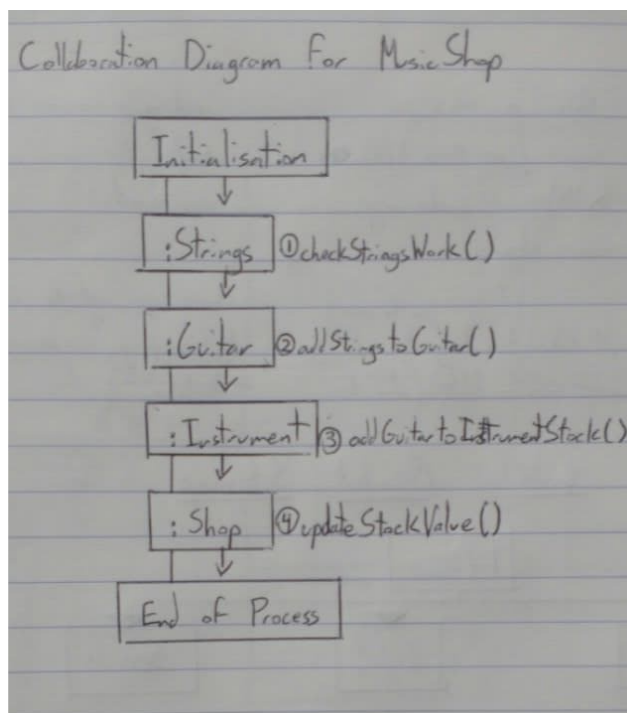 Collaboration Diagram For Music Shop
Initialisation
:Strings ①checkStringsWork()
:Guitar ②addStringstoGuitar()
:Instrument ③addGuitartoInstrumentStock()
:Shop ④updateStockValue()
End of Process